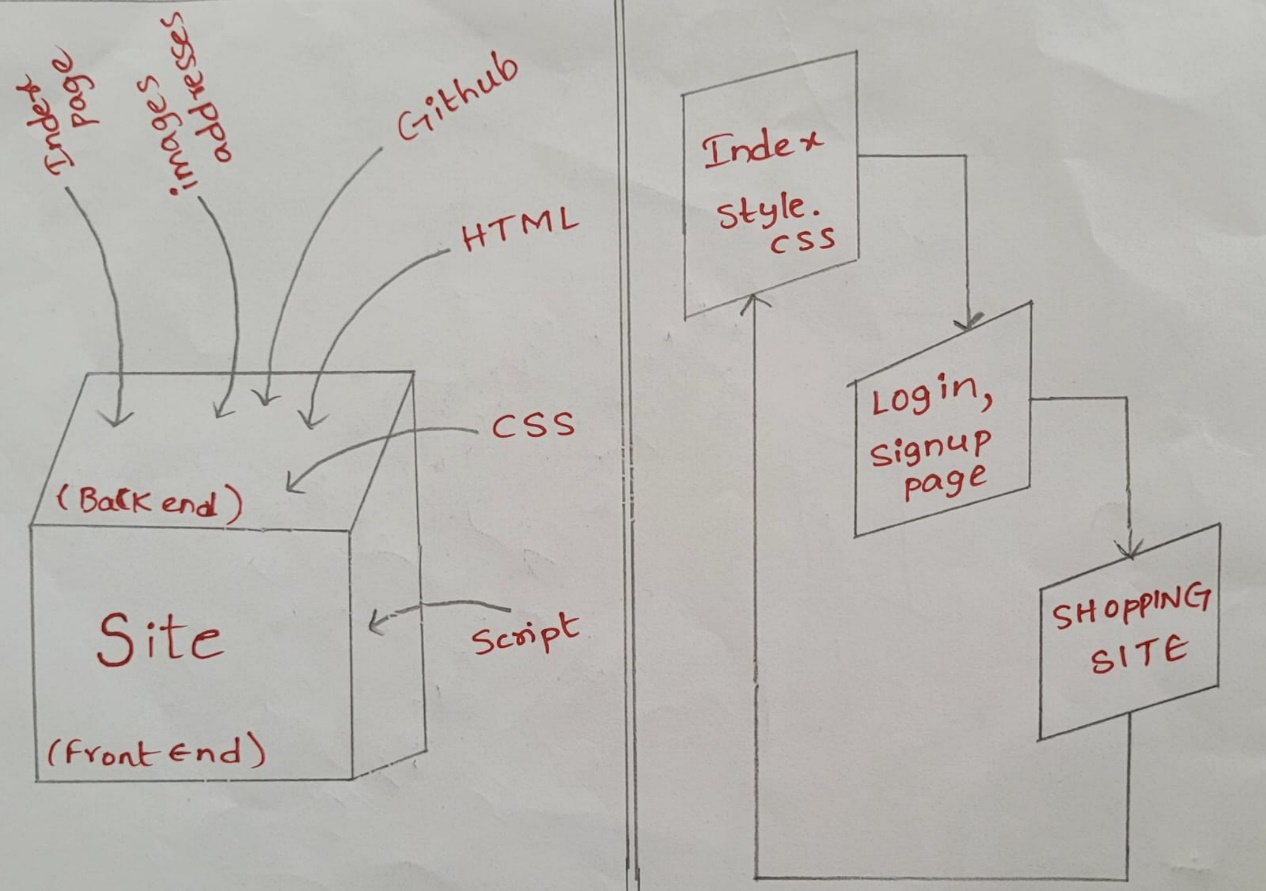 Index
page
images
addresses
Github
HTML
CSS
(Back end)
Site
Script
(Front End)
Index
style.
css
Login,
signup
page
SHOPPING
SITE